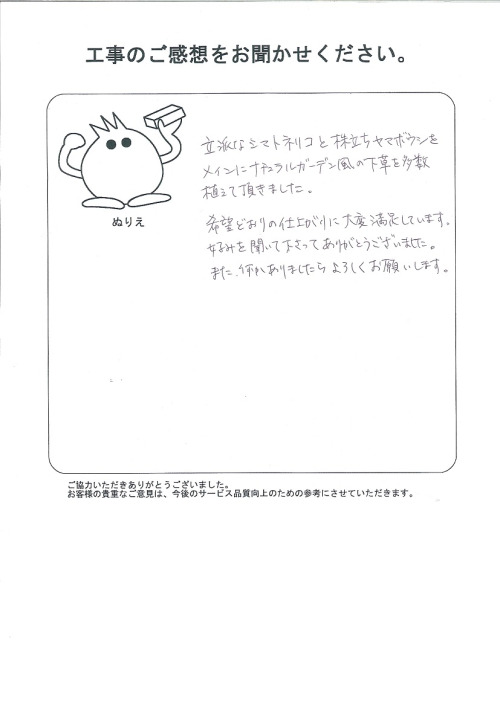 工事のご感想をお聞かせください。
立派なシマトネリコと株立ちヤマボウシを
メインにナチュラルガーデン風の下草を多数
植えて頂きました。
ぬりえ
希望どおりの仕上がりに大変満足しています。
好みを聞いて下さってありがとうございました。
また、何かありましたらよろしくお願いします。
ご協力いただきありがとうございました。
お客様の貴重なご意見は、今後のサービス品質向上のための参考にさせていただきます。